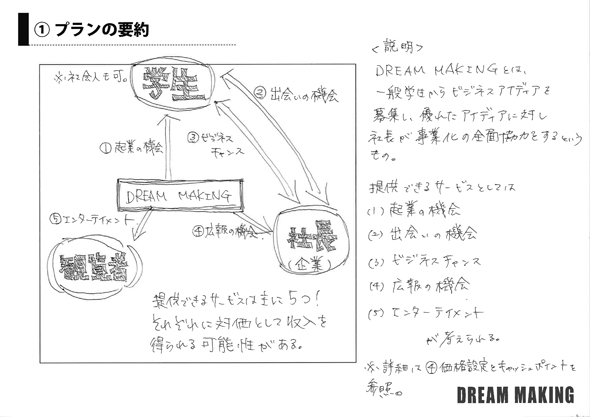 ① プランの要約
※社会人も可。
学生
② 出会いの機会
① 起業の機会
③ ビジネス
チャンス
DREAM MAKING
⑤エンターテイメント
④広報の機会
社長
(企業)
観覧者
提供できるサービスは主に5つ!
それぞれに対価として収入を
得られる可能性がある。
<説明>
DREAM MAKINGとは、
一般学生からビジネスアイディアを
募集し、優れたアイディアに対し
社長が事業化の全面協力をするという
もの。
提供できるサービスとしては
(1) 起業の機会
(2) 出会いの機会
(3) ビジネスチャンス
(4) 広報の機会
(5) エンターテイメント
が考えられる。
※詳細は④価格設定とキャッシュポイントを
参照。
DREAM MAKING